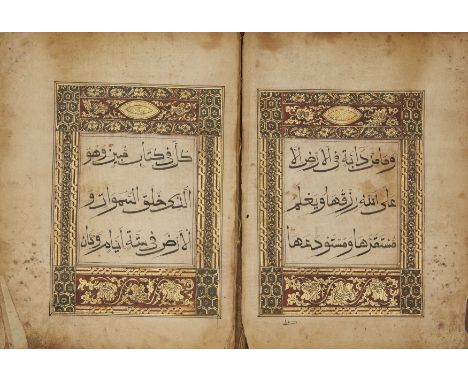 وما من دابة في الارض الا
على الله رزقها ويعلم
مستقرها ومستودعها
كل في كتاب مبين وهو
الذي خلق السموات و
الارض في ستة أيام وكان